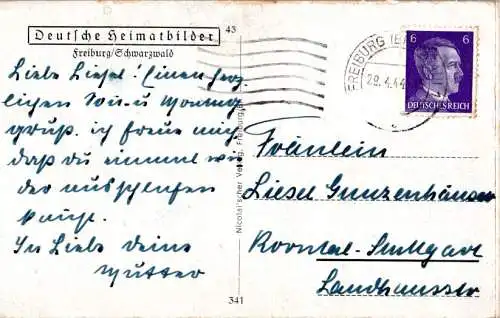 Deutsche Heimatbilder
43
Freiburg/Schwarzwald
Liebe Liesel! Einen herz
lichen Sonn- u Montag
gruß. ich freue mich
daß du einmal wie
der ausschlafen
kannst.
In Liebe deine
Mutter
341
Nicolai'scher Verlag, Freiburg
FREIBURG
28.4.44
6 6
DEUTSCHES REICH
Fräulein
Liesel Gunzenhäuser
Korntal-Stuttgart
Landhausstr